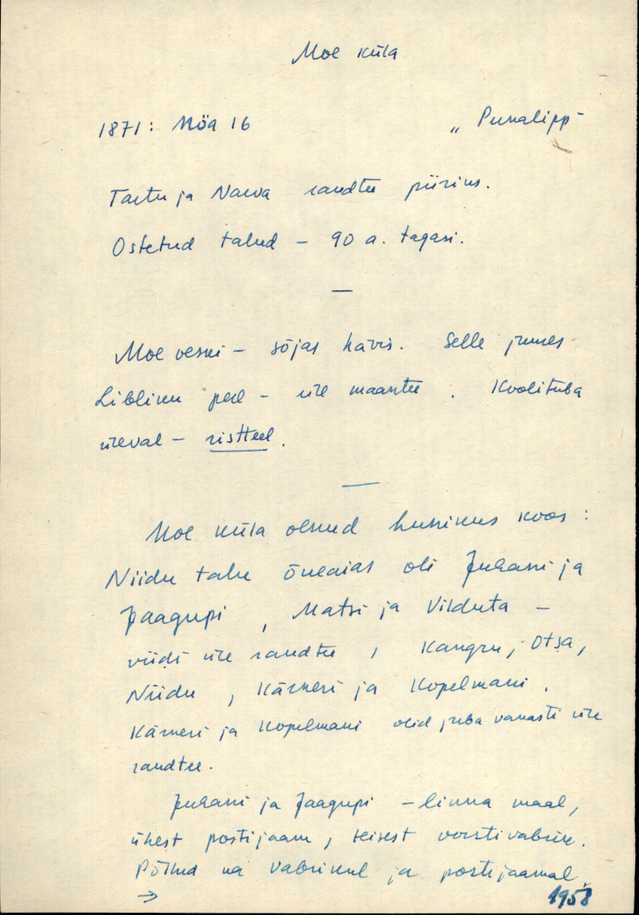 Moe küla
1871: Mõa 16 „Punalipp"
Tartu ja Narva raudtee piirius.
Ostetud talud – 90 a. tagasi.
—
Moe veski – sõjas hävis. Selle juures
Libliku peel – üle maantee. Koolituba
üleval – ristteel.
—
Moe küla olnud hunikus koos:
Niidu talu õueaias oli Juhani ja
Jaagupi, Matsi ja Vilduta –
viidi üle raudtee, Kangru, Otsa,
Niidu, Kärneri ja Kopelmani.
Kärneri ja Kopelmani olid juba vanasti üle
raudtee.
Juhani ja Jaagupi – linna maal,
ühest postijaam, teisest vorstivabrik.
Põllud ka vabrikul ja postijaamal.
→ 1958